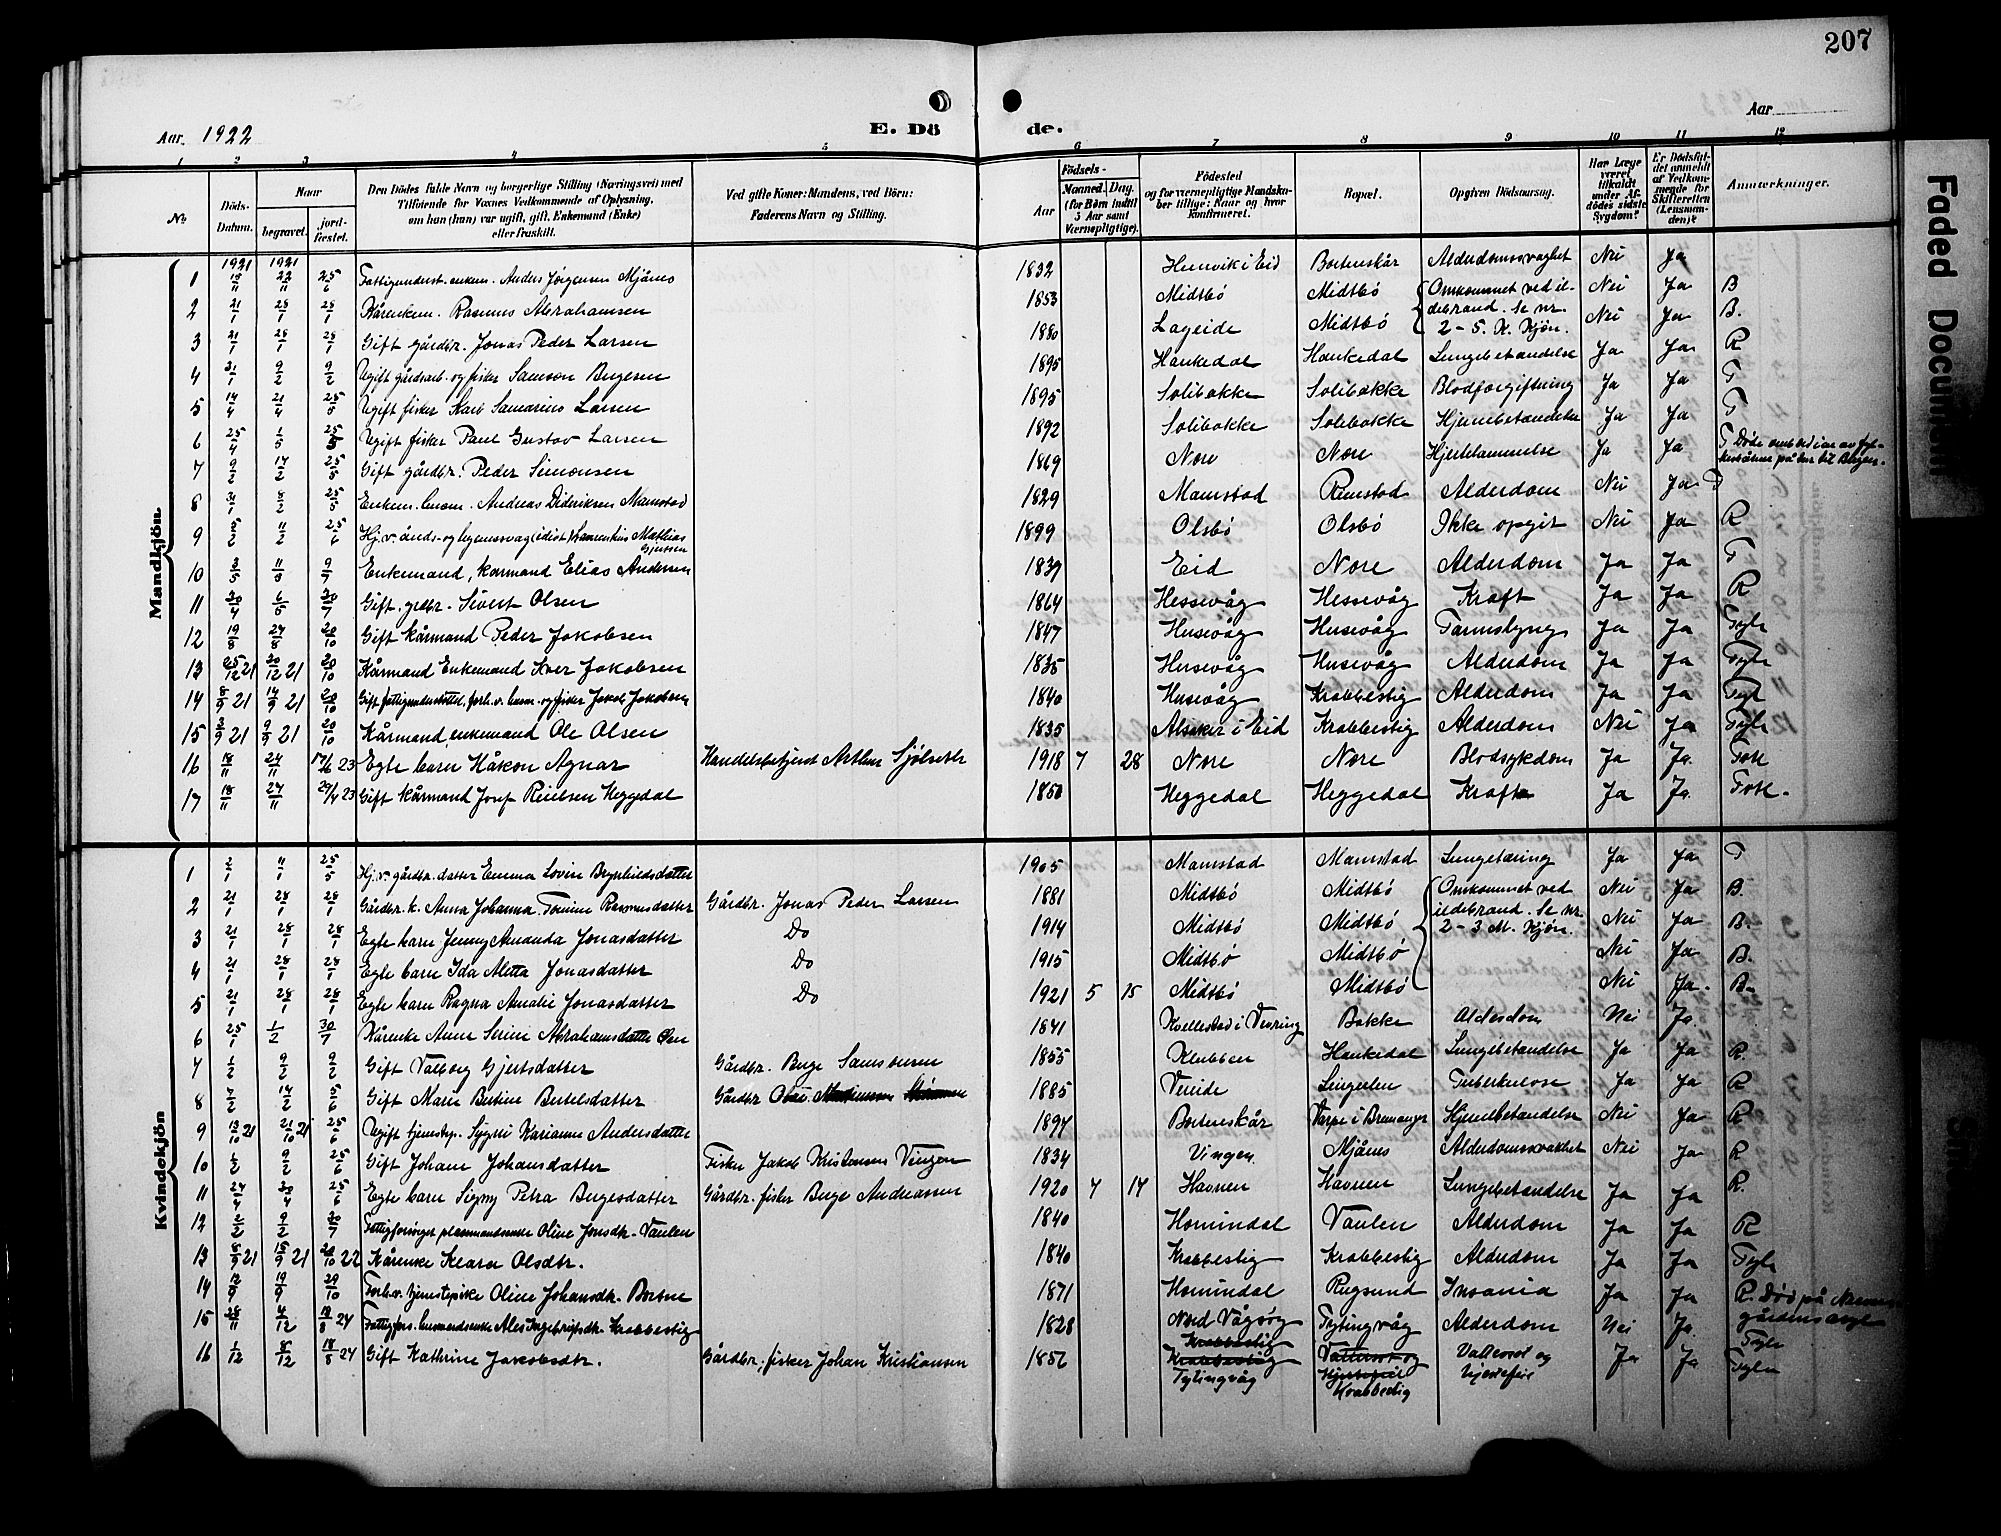 207
Aar 1922
E. Döde.
Aar
1 2 3 4 5 6 7 8 9 10 11 12
No
Döds-Datum.
Naar
begravet.
jord-fæstet.
Den Dödes fulde Navn og borgerlige Stilling (Næringsvei) med
Tilföiende for Voxnes Vedkommende af Oplysning,
om han (hun) var ugift, gift, Enkemand (Enke)
eller fraskilt.
Ved gifte Koner: Mandens, ved Börn:
Faderens Navn og Stilling.
Födsels-
Aar
Maaned. Dag.
(for Börn indtil
5 Aar samt
Værnepligtige).
Födested
og for værnepligtige Mandska-
ber tillige: Naar og hvor
konfirmeret.
Bopæl.
Opgiven Dödsaarsag.
Har Læge
været
tilkaldt
under Af-
dödes sidste
Sygdom?
Er Dödsfal-
det anmeldt
af Vedkom-
mende for
Skifteretten
(Lensman-
den)?
Anmærkninger.
Mandkjön
1921 1921
1 15/11 22/11 25/6 Fattigunderst. enkem. Anders Jørgensen Mjånes 1832 Hennvik i Eid Bortenskår Alderdomssvaghet Nei Ja
2 21/1 28/1 28/1 Kårenkem. Rasmus Abrahamsen 1853 Midtbö Midtbö Omkommet ved il- Nei Ja B
3 21/1 28/1 28/1 Gift gårdbr. Jonas Peder Larsen 1880 Lageide Midtbö debrand. Se nr. 2-5. K. Kjön. Nei Ja B.
4 31/1 9/2 9/2 Ugift gårdarb. og fisker Samson Bugesen 1895 Haukedal Haukedal Lungebetændelse Ja Ja R
5 14/4 21/4 25/5 Ugift fisker Larsen 1895 Solibakke Solibakke Blodforgiftning Ja Ja T
6 25/4 1/5 25/5 Ugift fisker Paul Gustav Larsen 1892 Solibakke Solibakke Hjernebetændelse Ja Ja T
7 9/2 17/2 25/5 Gift gårdbr. Peder Simonsen 1869 Nore Nore Hjertelammelse Ja Ja T Döde ombord i en av
på tur til Bergen.
8 31/1 8/2 25/5 Enkem. husm. Andreas Dideriksen Mamstad 1829 Mamstad Rimstad Alderdom Nei Ja T
9 5/2 11/2 25/6 Hj.v. ånds- og legemssvag idiot Laurentius Mathias
Gjertsen 1899 Olsbö Olsbö Ikke opgit Nei Ja R
10 3/5 11/5 9/7 Enkemand, kårmand Elias Andersen 1839 Eid Nore Alderdom Ja Ja T
11 30/4 6/5 30/7 Gift. grdbr. Sivert Olsen 1864 Hessevåg Hessevåg Kræft Ja Ja R
12 19/8 24/8 20/10 Gift kårmand Peder Jakobsen 1847 Husevåg Husevåg Tarmslyng Ja Ja Tyle
13 25/12 21 30/12 21 20/10 Kårmand Enkemand Iver Jakobsen 1835 Husevåg Husevåg Alderdom Ja Ja Tyle
14 8/9 21 14/9 21 20/10 Gift fattigunderstöttet, forh.v. husm. og fisker Jakob Jakobsen 1840 Husevåg Krabbestig Alderdom Ja Ja Tyle
15 3/9 21 9/9 21 20/10 Kårmand, enkemand Ole Olsen 1835 Alsaker i Eid Krabbestig Alderdom Nei Ja Tyle
16 18/11 24/11 17/6 23 Egte barn Håkon Agnar Handelsbetjent Arthur Sjölseth 1918 7 28 Nore Nore Blodsykdom Ja Ja. Tose
17 18/11 27/11 29/4 23 Gift kårmand Josef Reielsen Heggedal 1850 Heggedal Heggedal Kræft Ja Ja. Tose.
Kvindekjön
1 2/1 11/1 25/5 Hj.v. gårdbr. datter Emma Lovise Brynhildsdatter 1905 Mamstad Mamstad Lungetæring Ja Ja T
2 21/1 28/1 28/1 Gårdbr. k. Anna Johanna Tomine Rasmusdatter Gårdbr. Jonas Peder Larsen 1881 Midtbö Midtbö Omkommet ved Nei Ja B.
3 21/1 28/1 28/1 Egte barn Jenny Amanda Jonasdatter Do 1914 Midtbö Midtbö ildebrand. Se nr. 2-3 M. Kjön. Nei Ja B.
4 21/1 28/1 28/1 Egte barn Ida Aletta Jonasdatter Do 1915 Midtbö Midtbö Nei Ja B.
5 21/1 28/1 28/1 Egte barn Ragna Amalie Jonasdatter Do 1921 5 15 Midtbö Midtbö Nei Ja. B.
6 25/1 1/2 30/7 Kårenke Anne Serine Abrahamsdatter Öen 1841 Kvellestad i Vevring Bakke Alderdom Nei Ja.
7 1/2 9/2 9/2 Gift Valborg Gjertsdatter Gårdbr. Buge Samsonsen 1855 Klubben Haukedal Lungebetændelse Ja Ja R.
8 7/2 14/2 5/6 Gift Marie Bertine Bertelsdatter Gårdbr 1885 Vereide Lingelen Tuberkulose Ja Ja R
9 13/10 21 21/10 21 25/6 Ugift tjenestep. Sygni Karianne Andersdatter 1897 Bortenskår Varpe i Bremanger Hjernebetændelse Nei Ja R
10 1/2 9/2 25/6 Gift Johane Johansdatter Fisker Jakob Kristensen Vingen 1834 Vingen Mjånes Alderdomssvakhet Nei Ja R
11 24/4 30/4 25/6 Egte barn Signy Petra Bugesdatter Gårdbr. fisker Buge Andreassen 1920 7 14 Havnen Havnen Lungebetændelse Ja Ja R.
12 2/2 9/2 30/7 Fattigforsörget plassmandsenke Oline Jonsdtr. Vaulen 1840 Hornindal Vaulen Alderdom Ja Ja R
13 8/9 21 15/9 21 20/10 22 Kårenke Klara Olsdtr. 1840 Krabbestig Krabbestig Alderdom Ja Ja Tyle
14 12/9 19/9 29/10 Forh.v. tjenestepike Oline Johansdtr. Bortne 1871 Hornindal Rugsund Insania Ja Ja R. Död på Neevengårdens asyl
15 28/11 4/12 18/8 24 Fattigfors. husmandsenke Ales Ingebrigtsdtr. Krabbestig 1828 Nord Vågsöy Tytingvåg Alderdom Nei Ja Tyle
16 1/12 8/12 18/8 24 Gift Kathrine Jakobsdtr. Gårdbr. fisker Johan Kristiansen 1852 Krabbestig Krabbestig Tytingvåg Vattersot og Hjertefeil Krabbestig Vattersot og Hjertefeil Ja Ja Tyle
Faded Document